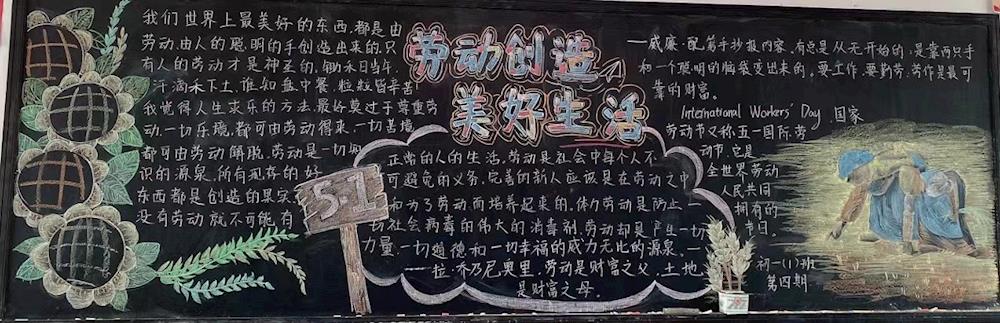 我们世界上最美好的东西,都是由
劳动,由人的聪,明的手创造出来的,只
有人的劳动才是神圣的,锄禾日当午,
汗滴禾下土,谁知盘中餐,粒粒皆辛苦
我觉得人生求乐的方法,最好莫过于尊重劳
动.一切乐境,都可由劳动得来,一切苦境,
都可由劳动解脱,劳动是一切知
识的源泉,所有现存的好
东西都是创造的果实
没有劳动就不可能有
劳动创造
美好生活
5·1
正常的人的生活,劳动是社会中每个人不
可避免的义务,完善的新人应该是在劳动之中
和为了劳动而培养起来的,体力劳动是防止一
切社会病毒的伟大的消毒剂,劳动却是产生一切
力量、一切道德和一切幸福的威力无比的源泉。一
一拉·乔乃尼奥里,劳动是财富之父,土地
是财富之母。
——威廉·配第手抄报内容,有总是从无开始的,是靠两只手
和一个聪明的脑袋变出来的。要工作,要勤劳,劳作是最可
靠的财富。
International Workers' Day 国家
劳动节又称五一国际劳
动节,它是
全世界劳动
人民共同
拥有的
节日。
初一(1)班
第四期